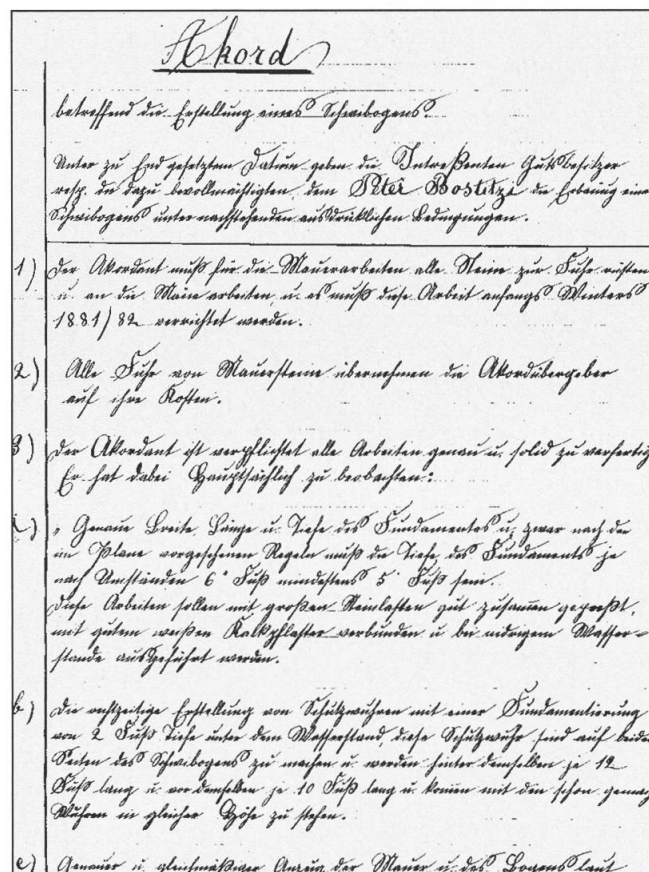 Akord
betreffend die Erstellung eines Schwibogens.
Unter zu End gesetztem Datum geben die Intreßenten Gutsbesitzer
resp. die dazu bevollmächtigten, dem Bostitzi die Erbauung eines
Schwibogens unter nachstehenden ausdrücklichen Bedingungen.
1) Der Akordant muß für die Mauerarbeiten alle Steine zur Fuhr rüsten
u. an die arbeiten, u. es muß diese Arbeit anfangs Winters
1881/82 verrichtet werden.
2) Alle Fuhr von Mauersteine übernehmen die Akordübergeber
auf ihre Kosten.
3) Der Akordant ist verpflichtet alle Arbeiten genau u. solid zu verfertig
Er hat dabei Hauptsächlich zu beobachten:
Genaue Breite, Länge u. Tiefe des Fundamentes u. zwar nach den
im Plane vorgesehenen Regeln muß die Tiefe des Fundaments je
nach Umständen 6 Fuß mindestens 5 Fuß sein.
Diese Arbeiten sollen mit großen Steinlasten gut zusammen gepreßt,
mit gutem weißen Kalkpflaster verbunden u bei nidrigem Wasser-
stande ausgeführt werden.
b) Die rechtzeitige Erstellung von Schutzwuhren mit einer Fundamentierung
von 2 Fuß Tiefe unter dem Wasserstand, diese Schutzwuhr sind auf beiden
Seiten des Schwibogens zu machen u. werden hinter demselben je 12
Fuß lang u. vor demselben je 10 Fuß lang u. kommen mit den schon gemach
Wuhren in gleicher Höhe zu stehen.
c) Genauer u. gleichmäßiger Anzug der Mauer u. des Bogens laut